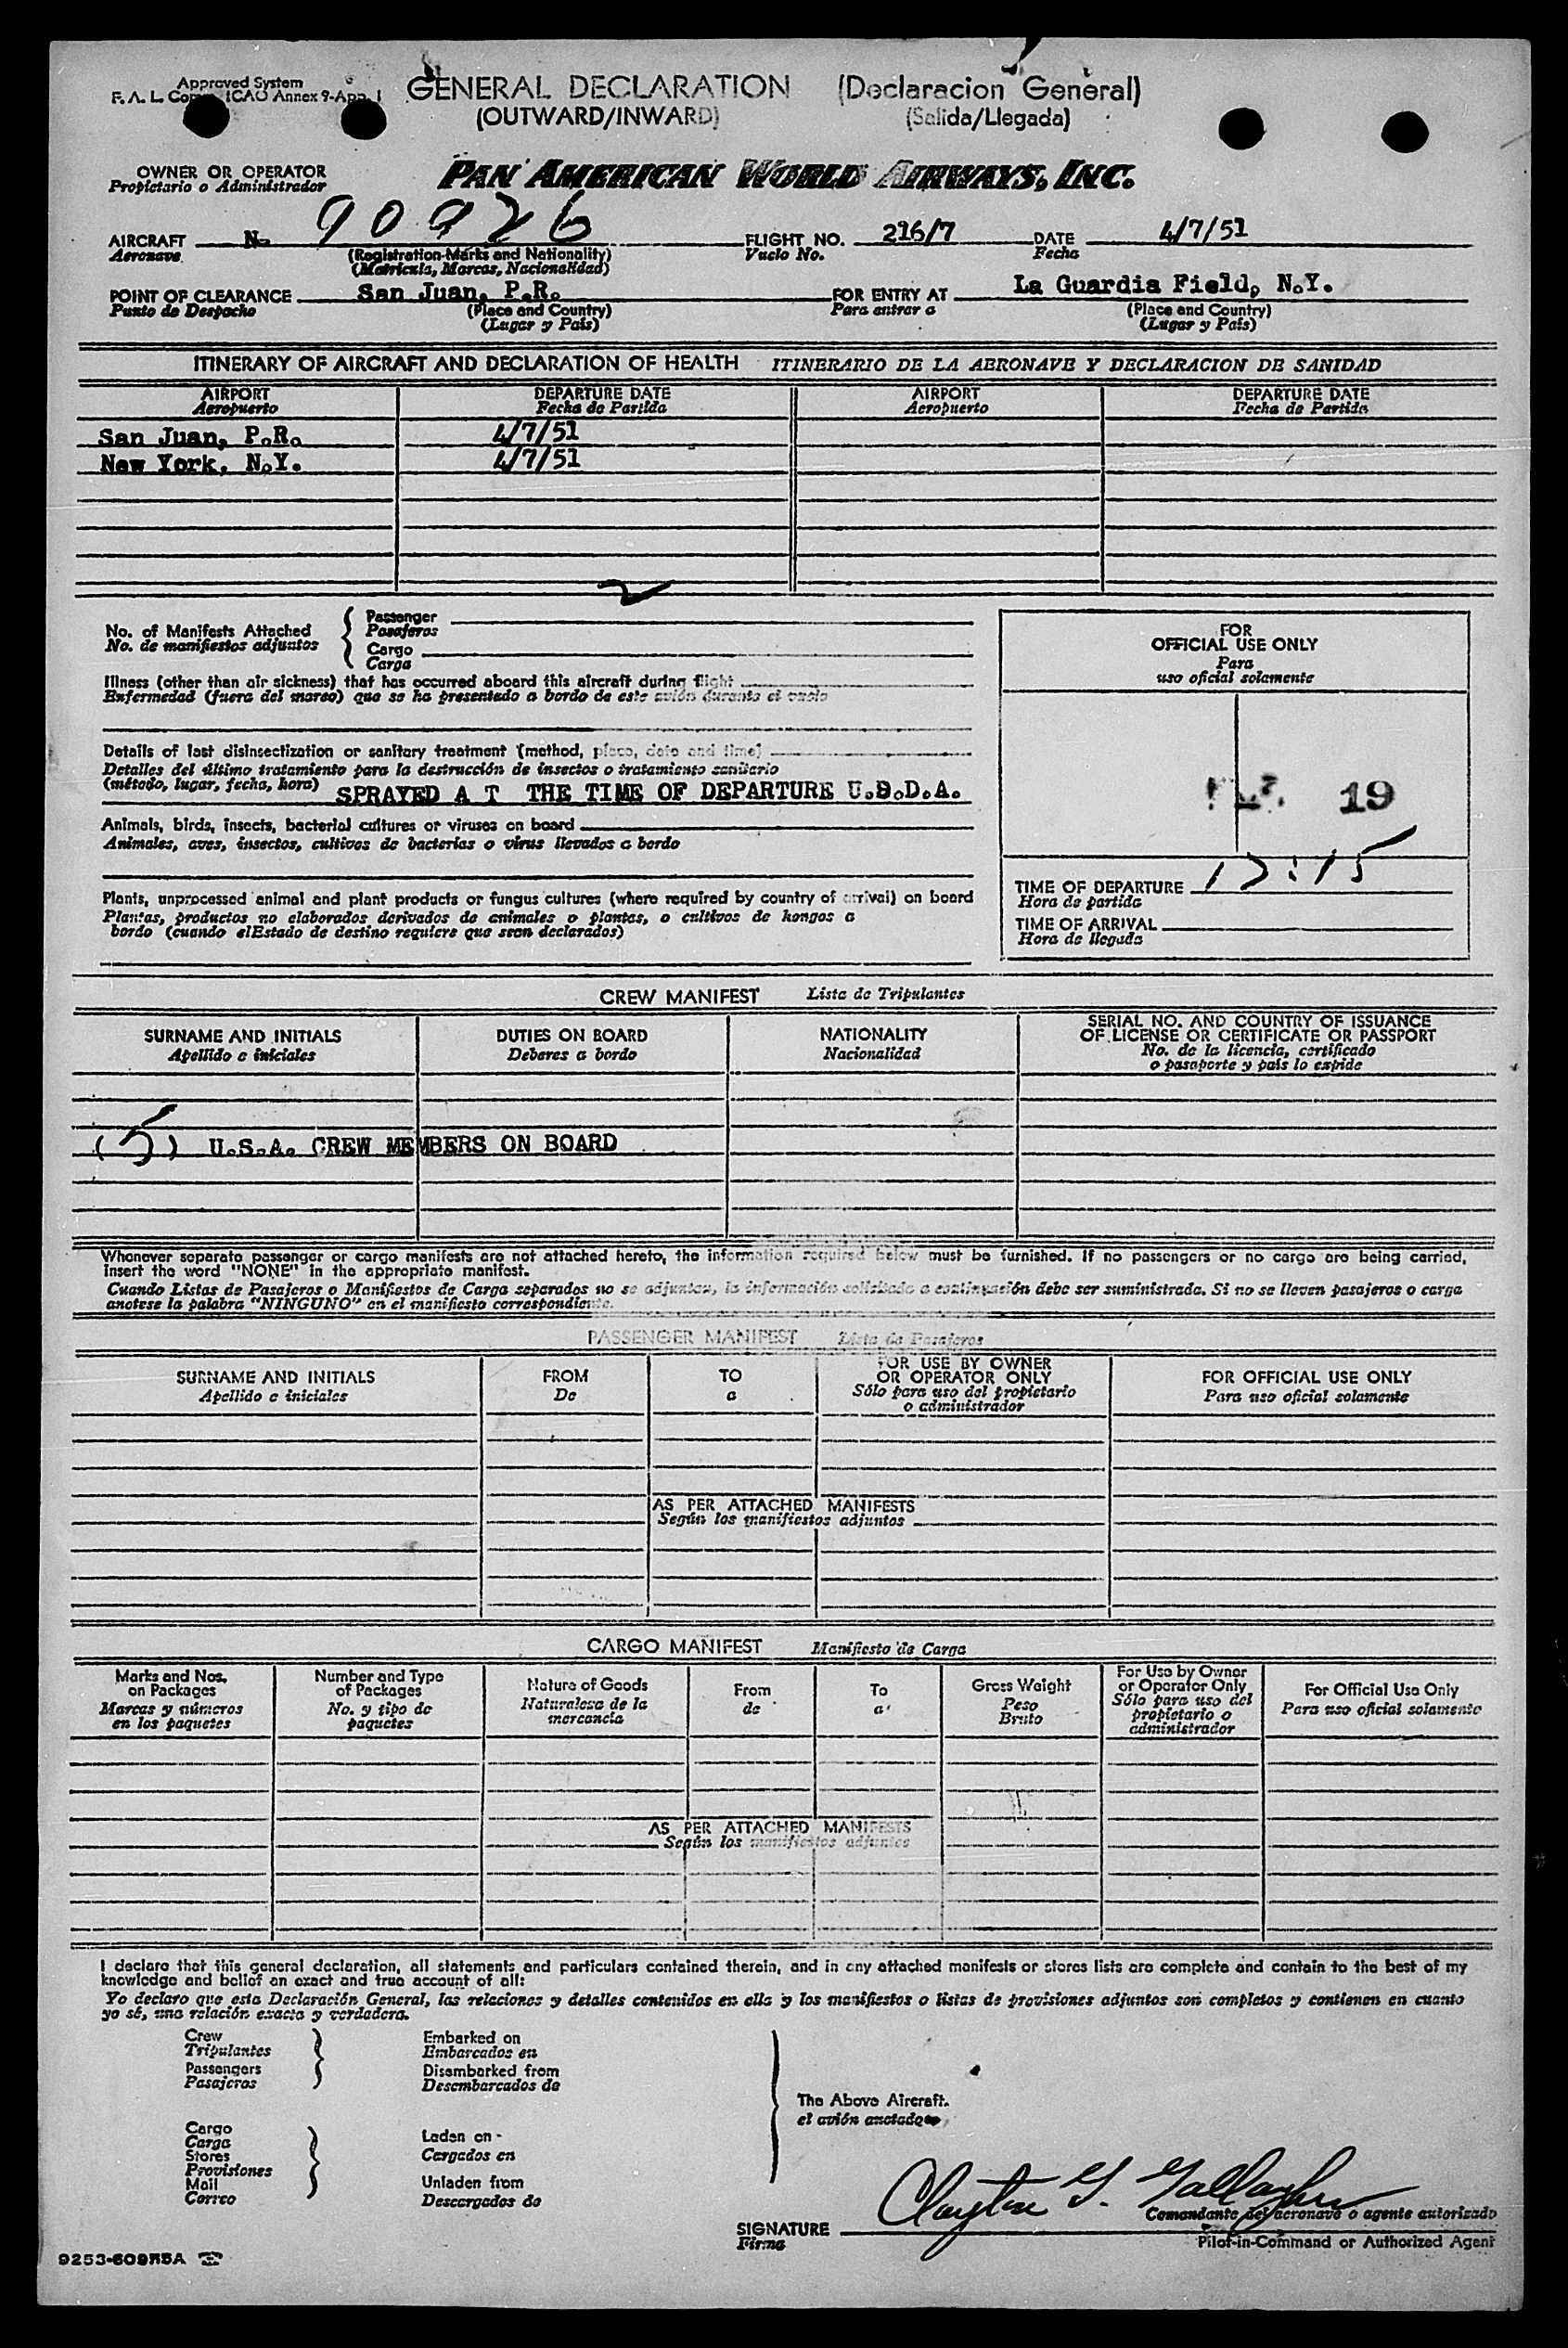 Approved System
F. A. L. Comm. ICAO Annex 9-App. 1
GENERAL DECLARATION (Declaracion General)
(OUTWARD/INWARD) (Salida/Llegada)
OWNER OR OPERATOR PAN AMERICAN WORLD AIRWAYS, INC.
Propietario o Administrador
AIRCRAFT N- 90926 FLIGHT NO. 216/7 DATE 4/7/51
Aeronave (Registration-Marks and Nationality) Vuelo No. Fecha
(Matricula, Marcas, Nacionalidad)
POINT OF CLEARANCE San Juan, P.R. FOR ENTRY AT La Guardia Field, N.Y.
Punto de Despacho (Place and Country) Para entrar a (Place and Country)
(Lugar y País) (Lugar y País)
ITINERARY OF AIRCRAFT AND DECLARATION OF HEALTH ITINERARIO DE LA AERONAVE Y DECLARACION DE SANIDAD
AIRPORT DEPARTURE DATE AIRPORT DEPARTURE DATE
Aeropuerto Fecha de Partida Aeropuerto Fecha de Partida
San Juan, P.R. 4/7/51
New York, N.Y. 4/7/51
2
No. of Manifests Attached
No. de manifiestos adjuntos
Passenger
Pasajeros
Cargo
Carga
Illness (other than air sickness) that has occurred aboard this aircraft during flight
Enfermedad (fuera del mareo) que se ha presentado a bordo de este avión durante el vuelo
Details of last disinsectization or sanitary treatment (method, place, date and time)
Detalles del último tratamiento para la destrucción de insectos o tratamiento sanitario
(método, lugar, fecha, hora) SPRAYED A T THE TIME OF DEPARTURE U.S.D.A.
Animals, birds, insects, bacterial cultures or viruses on board
Animales, aves, insectos, cultivos de bacterias o virus llevados a bordo
Plants, unprocessed animal and plant products or fungus cultures (where required by country of arrival) on board
Plantas, productos no elaborados derivados de animales o plantas, o cultivos de hongos a
bordo (cuando elEstado de destino requiere que sean declarados)
FOR
OFFICIAL USE ONLY
Para
uso oficial solamente
19
TIME OF DEPARTURE 17:15
Hora de partida
TIME OF ARRIVAL
Hora de llegada
CREW MANIFEST Lista de Tripulantes
SURNAME AND INITIALS DUTIES ON BOARD NATIONALITY SERIAL NO. AND COUNTRY OF ISSUANCE
OF LICENSE OR CERTIFICATE OR PASSPORT
Apellido e iniciales Deberes a bordo Nacionalidad No. de la licencia, certificado
o pasaporte y país lo expide
(5) U.S.A. CREW MEMBERS ON BOARD
Whenever separate passenger or cargo manifests are not attached hereto, the information required below must be furnished. If no passengers or no cargo are being carried,
insert the word "NONE" in the appropriate manifest.
Cuando Listas de Pasajeros o Manifiestos de Carga separados no se adjuntan, la información solicitada a continuación debe ser suministrada. Si no se lleven pasajeros o carga
anotese la palabra "NINGUNO" en el manifiesto correspondiente.
PASSENGER MANIFEST Lista de Pasajeros
SURNAME AND INITIALS FROM TO FOR USE BY OWNER OR OPERATOR ONLY FOR OFFICIAL USE ONLY
Apellido e iniciales De a Sólo para uso del propietario o administrador Para uso oficial solamente
AS PER ATTACHED MANIFESTS
Según los manifiestos adjuntos
CARGO MANIFEST Manifiesto de Carga
Marks and Nos. on Packages Number and Type of Packages Nature of Goods From To Gross Weight For Use by Owner or Operator Only For Official Use Only
Marcas y números en los paquetes No. y tipo de paquetes Naturaleza de la mercancia de a Peso Bruto Sólo para uso del propietario o administrador Para uso oficial solamente
AS PER ATTACHED MANIFESTS
Según los manifiestos adjuntos
I declare that this general declaration, all statements and particulars contained therein, and in any attached manifests or stores lists are complete and contain to the best of my
knowledge and belief an exact and true account of all:
Yo declaro que esta Declaración General, las relaciones y detalles contenidos en ella y los manifiestos o listas de provisiones adjuntos son completos y contienen en cuanto
yo sé, una relación exacta y verdadera.
Crew Embarked on
Tripulantes Embarcados en
Passengers Disembarked from
Pasajeros Desembarcados de
The Above Aircraft.
el avión anotado
Cargo
Carga
Stores
Provisiones
Mail
Correo
Laden on
Cargados en
Unladen from
Descargados de
SIGNATURE Clayton G. Gallagher
Firma
Comandante del aeronave o agente autorizado
Pilot-in-Command or Authorized Agent
9253-60955A